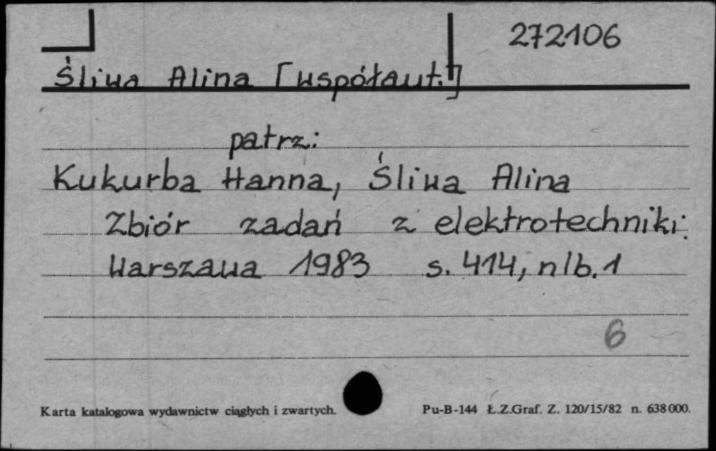 272106
Śliwa Alina [współaut.]
patrz:
Kukurba Hanna, Śliwa Alina
Zbiór zadań z elektrotechniki.
Warszawa 1983 s. 414, nlb. 1
6
Karta katalogowa wydawnictw ciągłych i zwartych. Pu-B-144 Ł.Z.Graf. Z. 120/15/82 n. 638000.